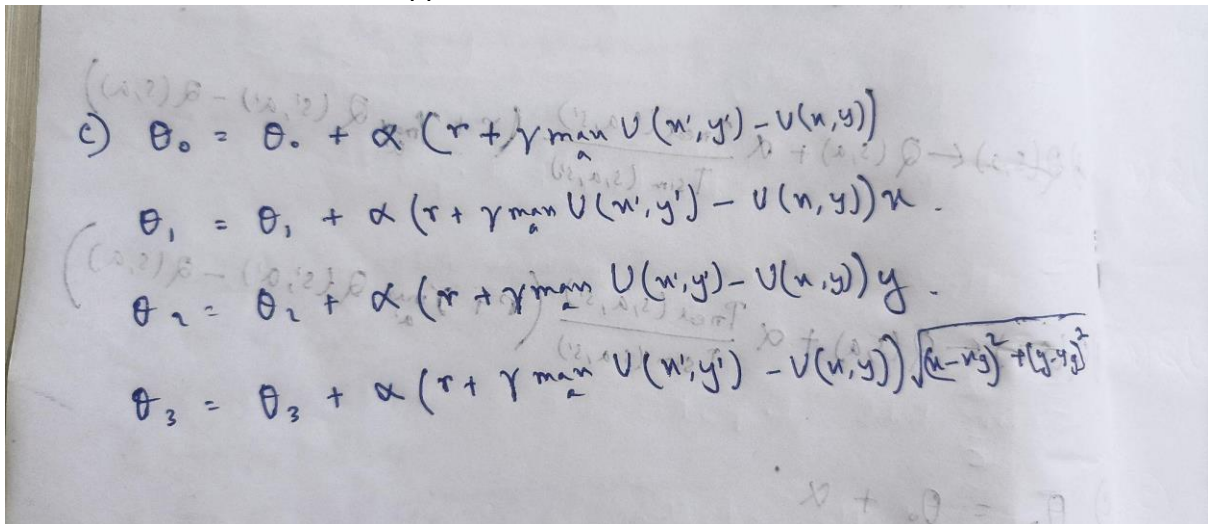 c) θ₀ = θ₀ + α (r + γ max_a U(x', y') - U(x, y))
θ₁ = θ₁ + α (r + γ max_a U(x', y') - U(x, y)) x .
θ₂ = θ₂ + α (r + γ max_a U(x', y') - U(x, y)) y .
θ₃ = θ₃ + α (r + γ max_a U(x', y') - U(x, y)) √((x-x_g)² + (y-y_g)²)